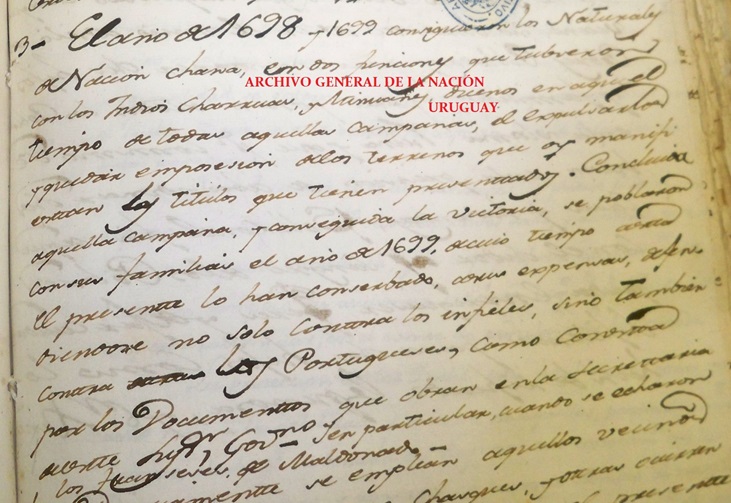 3- El año de 1698 y 1699 consiguieron los Naturales
de Nación chana, en dos funciones que tubieron
ARCHIVO GENERAL DE LA NACIÓN
URUGUAY
con los Indios Charruas, y Minuanes dueños en aquel
tiempo de todas aquellas Campañas, el expulsarlos
y quedar en imposesion de los terrenos que oy manifi
estan los titulos que tienen presentados. Concluida
aquella Campaña, y conseguida la victoria, se poblaron
con sus familias el año de 1699, de cuio tiempo asta
el presente lo han conserbado, a sus expensas, defen
diendose no solo contra los infieles, sino tambien
contra los Portugueses, como consta
por los Documentos que obran en la Secretaria
de este Gov.no y en particular, cuando se echaron
los franseses de Maldonado
se emplean aquellos vecinos
chasques, y otras